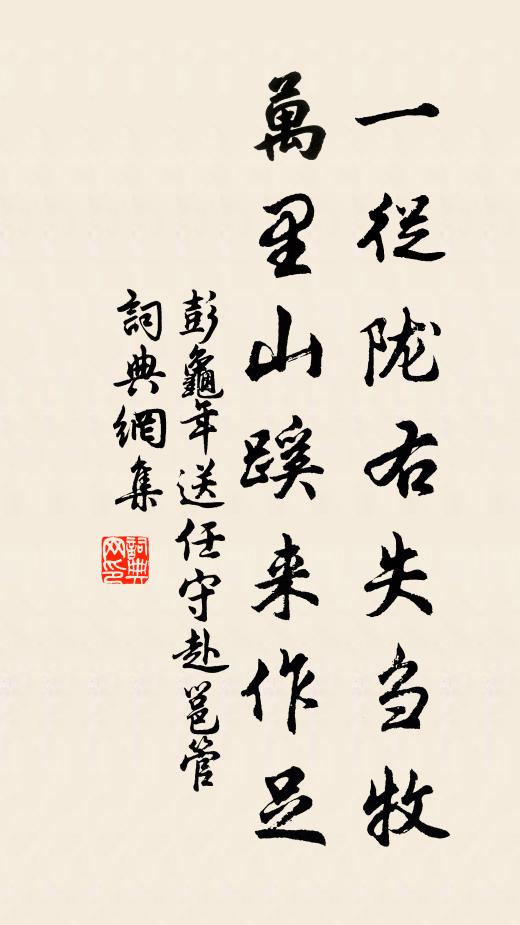 一從陇右失刍牧
萬里山蹊来作足
彭龜年送任守赴邕管
詞典網集
詞典网印